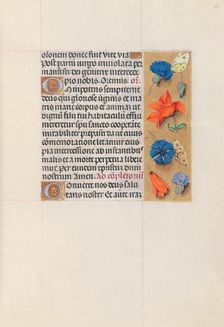 olonem donec fuit vite via
Post partū virgo inviolata per
mansisti dei genitrix interce
pro nobis Oremus
Omnipotens sempiterne
deus qui gloriose virginis et ma
tris marie corpus et animam ut
dignū filii tui habitaculū effici
mereretur spū sancto cooperante
mirabiliter preparasti da ut cu
ius commemoratione letamur eius
pia intercessione ab instantibus
malis et a morte perpetua libere
mur per eundem dūm
nostrum Amen Ad cōpletoriū
Converte nos deus salu
taris noster Et averte iram